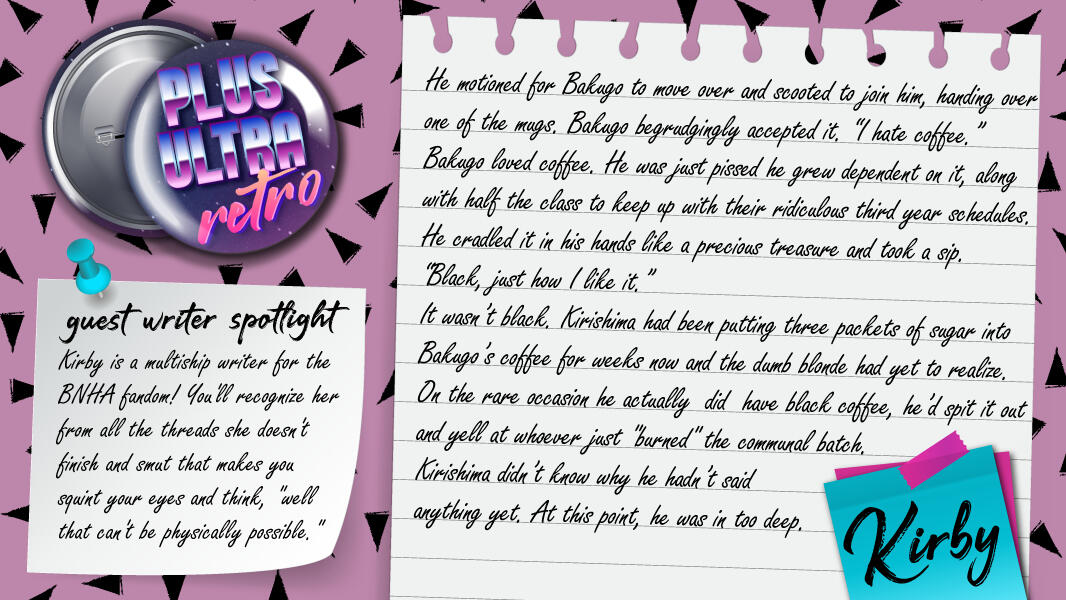 PLUS
ULTRA
retro
guest writer spotlight
Kirby is a multiship writer for the
BNHA fandom! You'll recognize her
from all the threads she doesn't
finish and smut that makes you
squint your eyes and think, "well
that can't be physically possible."
He motioned for Bakugo to move over and scooted to join him, handing over
one of the mugs. Bakugo begrudgingly accepted it. "I hate coffee."
Bakugo loved coffee. He was just pissed he grew dependent on it, along
with half the class to keep up with their ridiculous third year schedules.
He cradled it in his hands like a precious treasure and took a sip.
"Black, just how I like it."
It wasn't black. Kirishima had been putting three packets of sugar into
Bakugo's coffee for weeks now and the dumb blonde had yet to realize.
On the rare occasion he actually did have black coffee, he'd spit it out
and yell at whoever just "burned" the communal batch.
Kirishima didn't know why he hadn't said
anything yet. At this point, he was in too deep.
Kirby